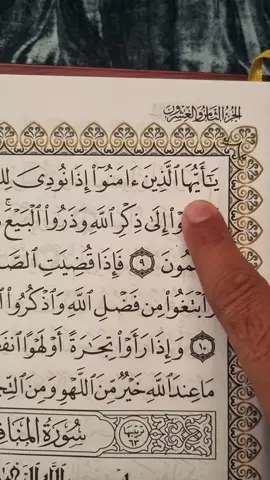 الجزء الثامن والعشرون
يَٰٓأَيُّهَا ٱلَّذِينَ ءَامَنُوٓا۟ إِذَا نُودِىَ
إِلَىٰ ذِكْرِ ٱللَّهِ وَذَرُوا۟ ٱلْبَيْعَ ۚ
٩ فَإِذَا قُضِيَتِ
وَٱبْتَغُوا۟ مِن فَضْلِ ٱللَّهِ وَٱذْكُرُوا۟
١٠ وَإِذَا رَأَوْا۟ تِجَٰرَةً أَوْ لَهْوًا
مَا عِندَ ٱللَّهِ خَيْرٌ مِّنَ ٱللَّهْوِ وَمِنَ
ترتيبها ٦٣ سُورَةُ